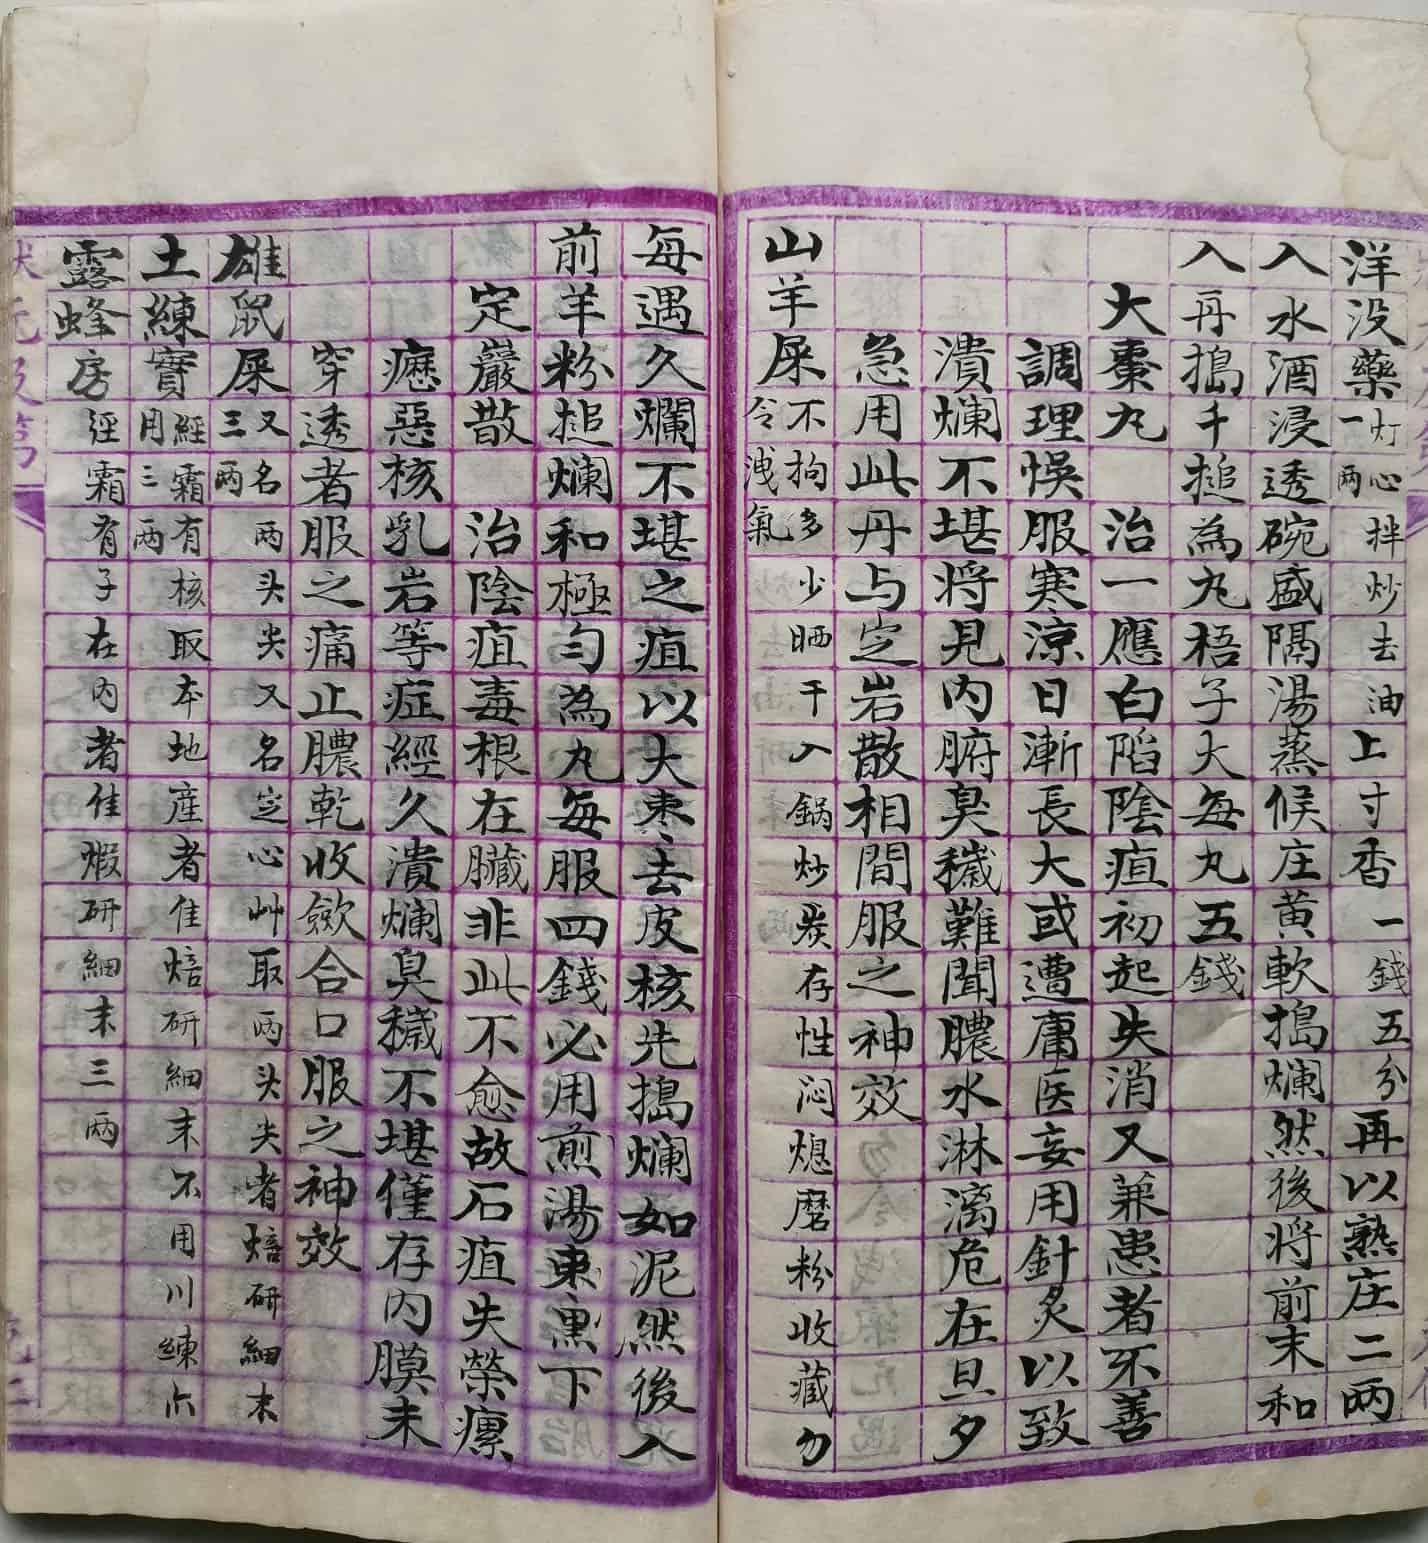 洋没藥一两灯心拌炒去油上寸香一錢五分再以熟庄二两
入水酒浸透碗盛隔湯蒸候庄黄軟搗爛然後將前末和
入再搗千搥為丸梧子大每丸五錢
大棗丸 治一應白陷陰疽初起失消又兼患者不善
調理悞服寒涼日漸長大或遭庸医妄用針炙以致
潰爛不堪将見內腑臭穢難聞膿水淋漓危在旦夕
急用此丹与定岩散相間服之神效
山羊屎不拘多少晒干入鍋炒炭存性闷熄磨粉收藏勿令洩氣
每遇久爛不堪之疽以大棗去皮核先搗爛如泥然後入
前羊粉搥爛和極勻為丸每服四錢必用煎湯東熏下
定巖散 治陰疽毒根在臟非此不愈故石疽失榮瘰
癧惡核乳岩等症經久潰爛臭穢不堪僅存内膜未
穿透者服之痛止膿乾收歛合口服之神效
雄鼠屎又名两头尖又名定心艸取两头尖者焙研細末三两
土練實經霜有核取本地産者佳焙研細末不用川練六月三两
露蜂房經霜有子在內者佳煆研細末三两